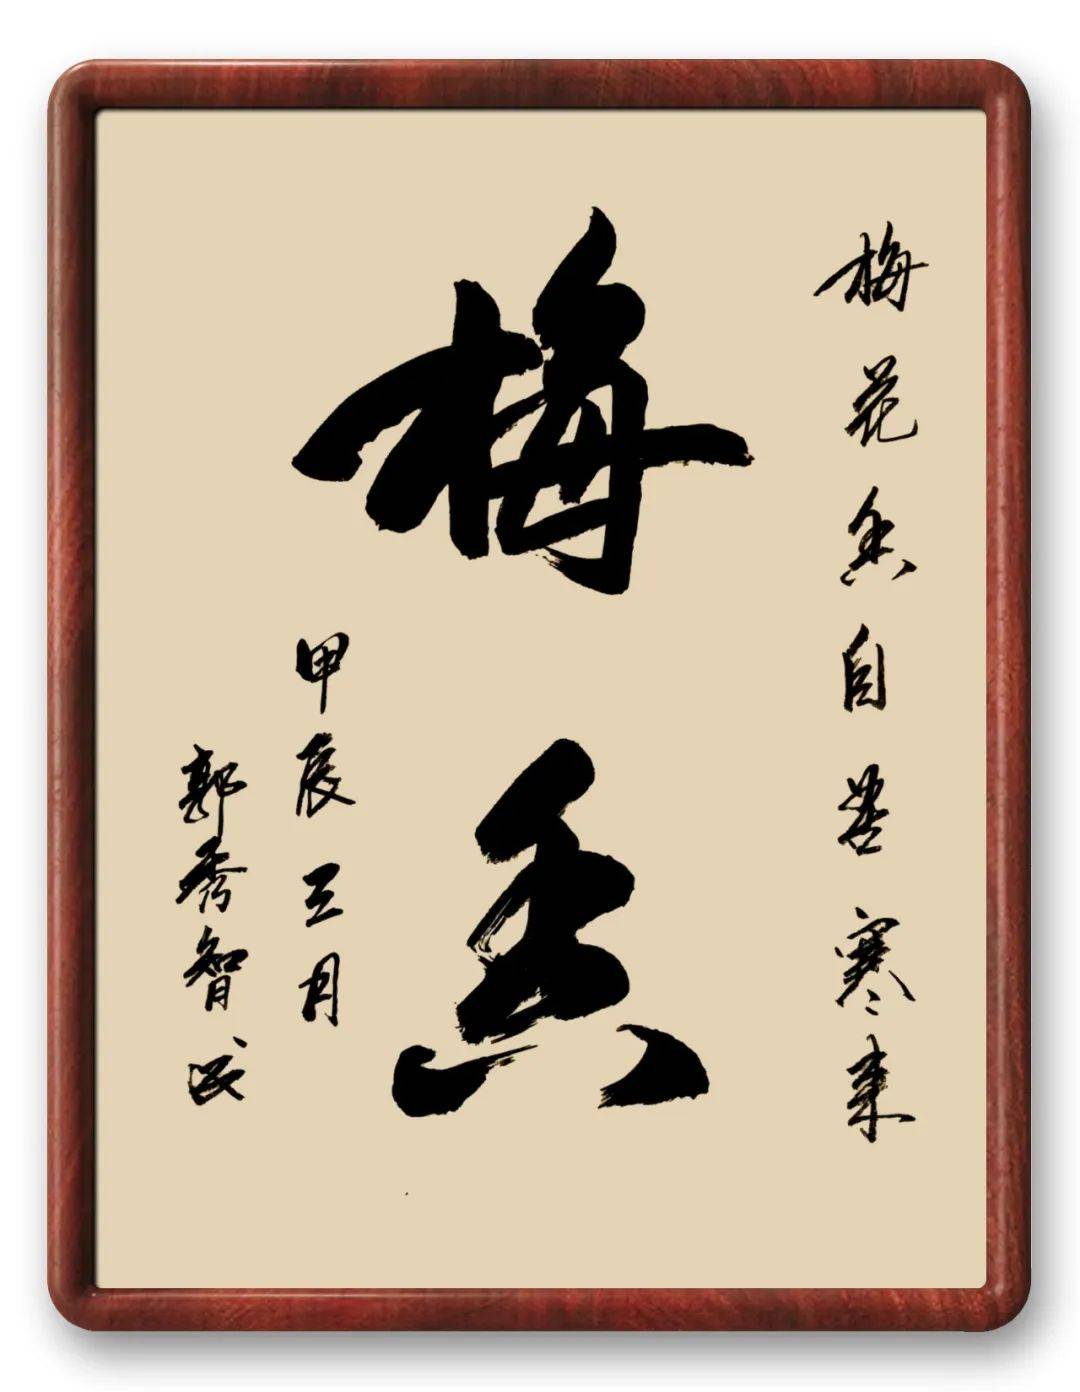 梅花香自苦寒来
梅香
甲辰三月
郭秀智书